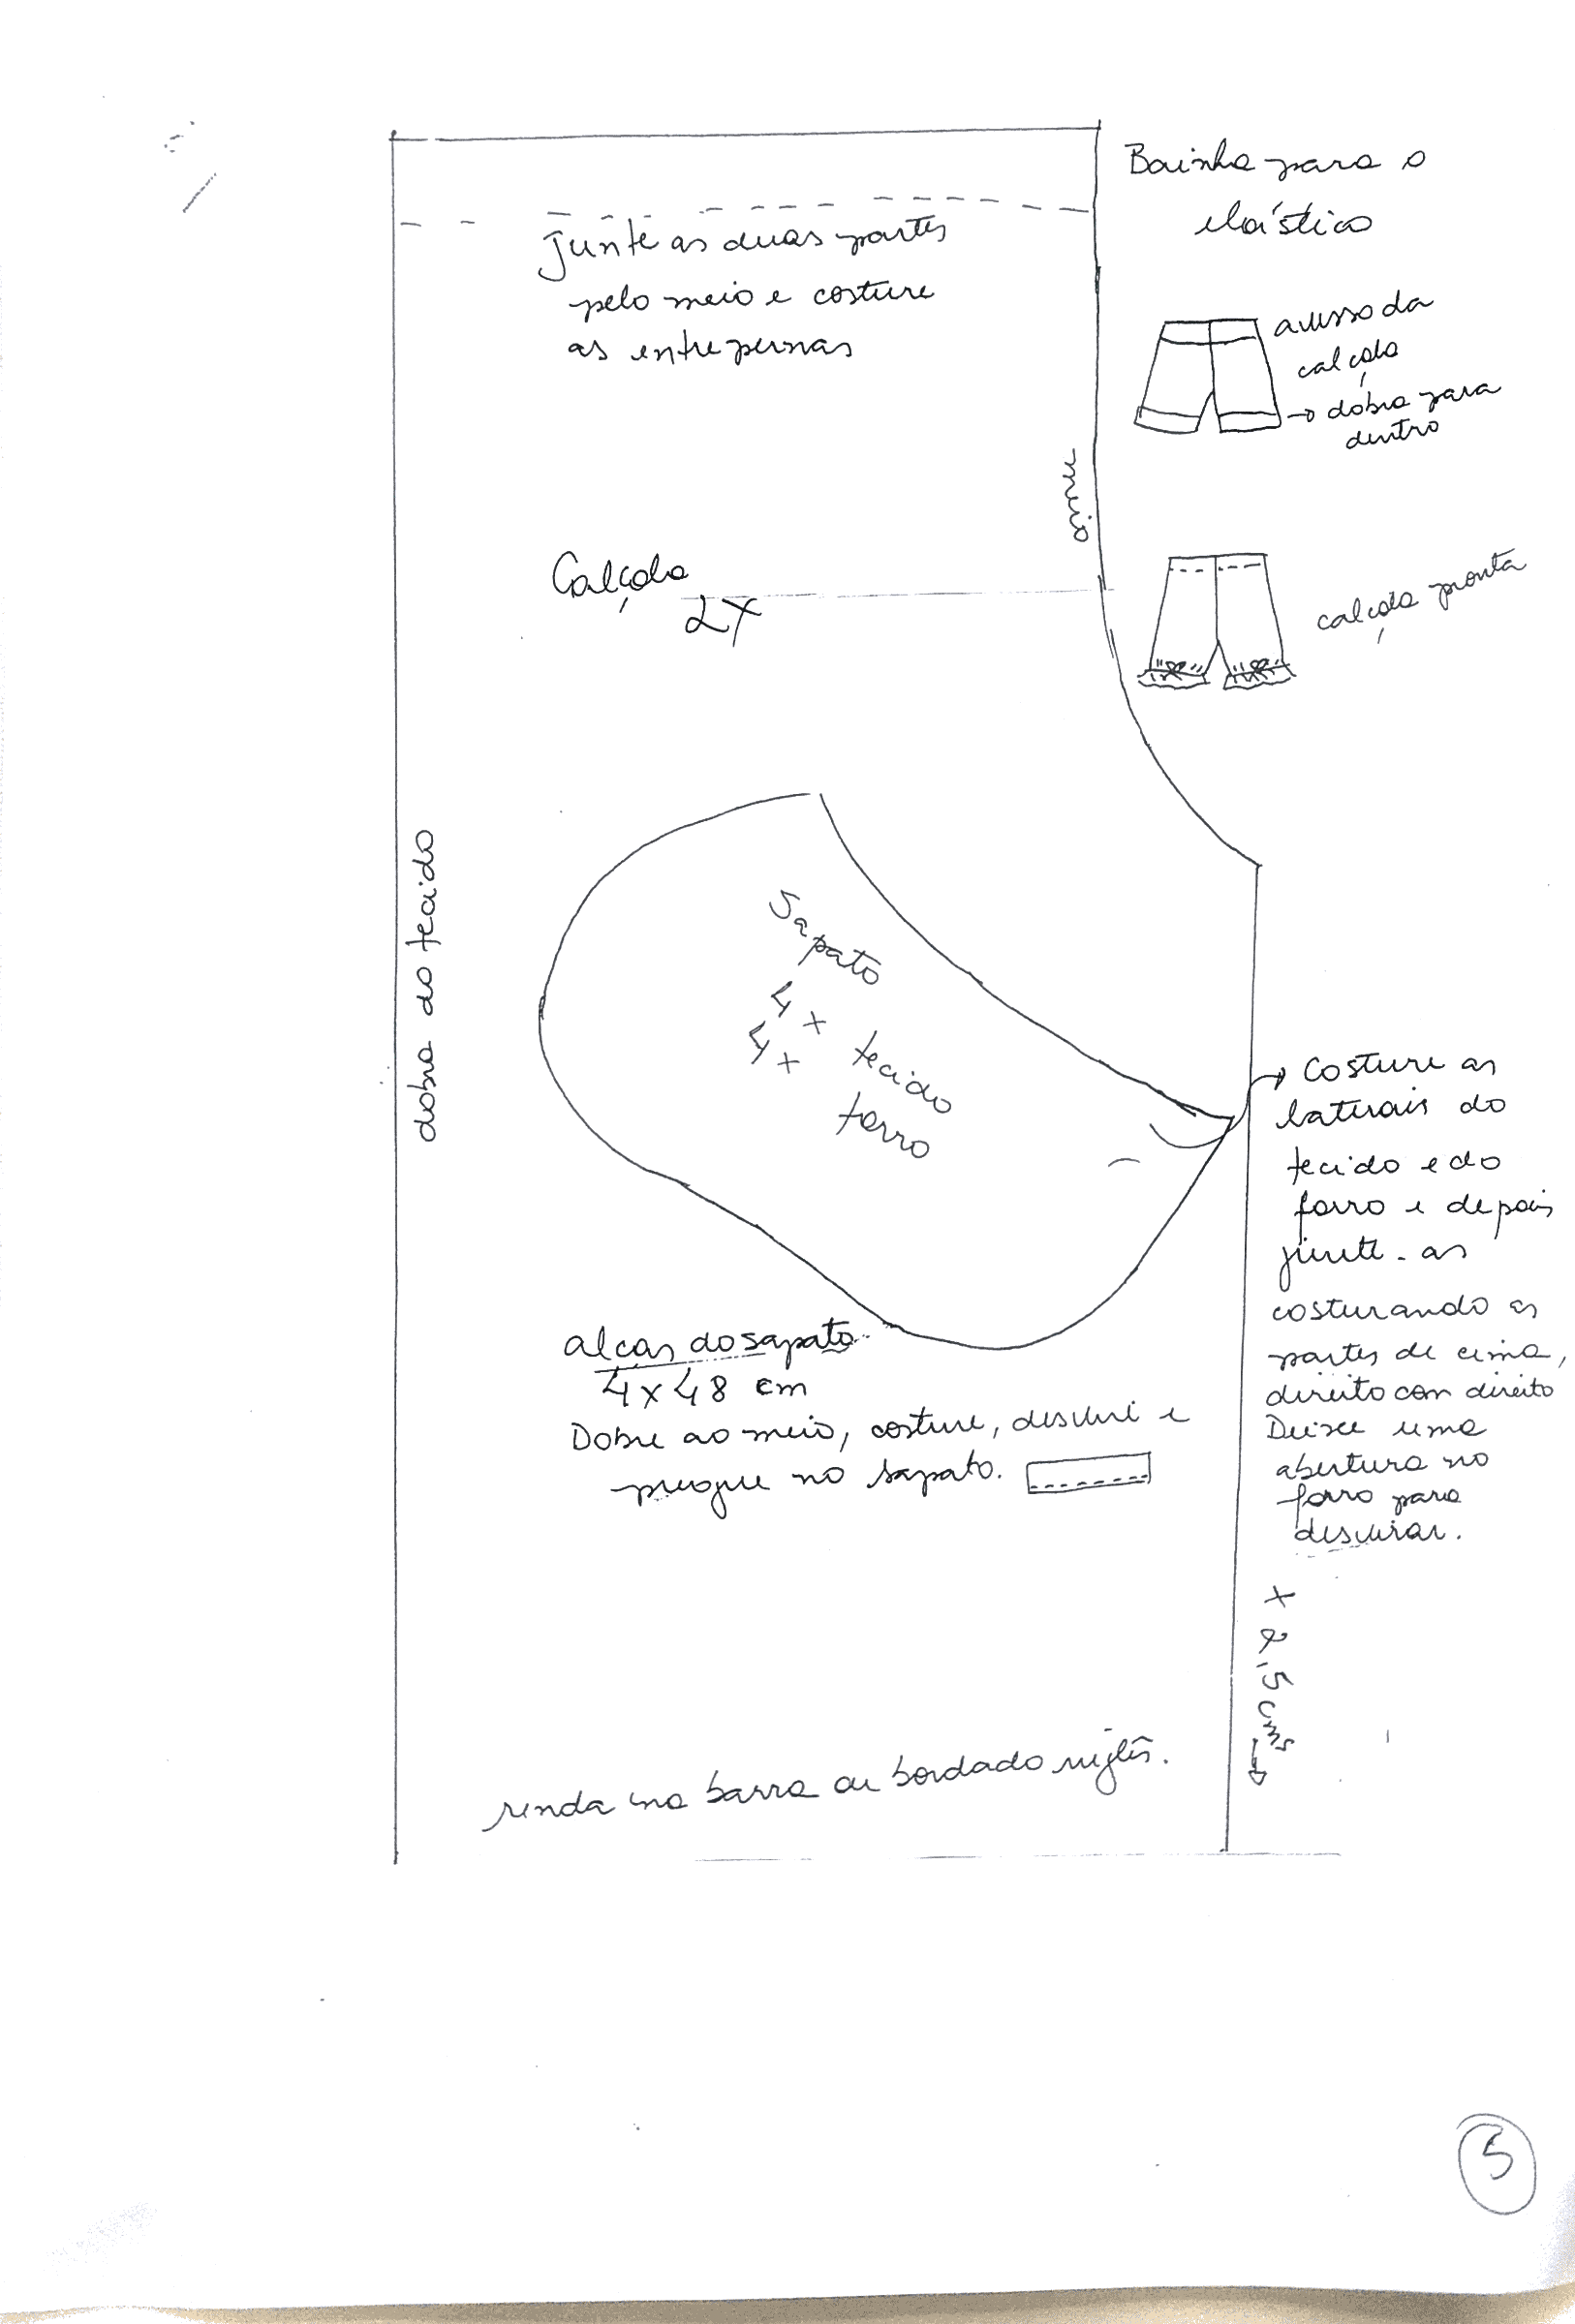 Bainha para o
elástico
Junte as duas partes
pelo meio e costure
as entrepernas
avesso da
calçola
→ dobra para
dentro
meio
Calçola
2X
calçola pronta
dobra do tecido
Sapato
4x tecido
4x forro
→ Costure as
laterais do
tecido e do
forro e depois
junte-as
costurando as
partes de cima,
direito com direito
Deixe uma
abertura no
forro para
desvirar.
alças do sapato
4x48 cm
Dobre ao meio, costure, desvire e
pregue no sapato.
+ 2,5 cms →
renda na barra ou bordado inglês.
5